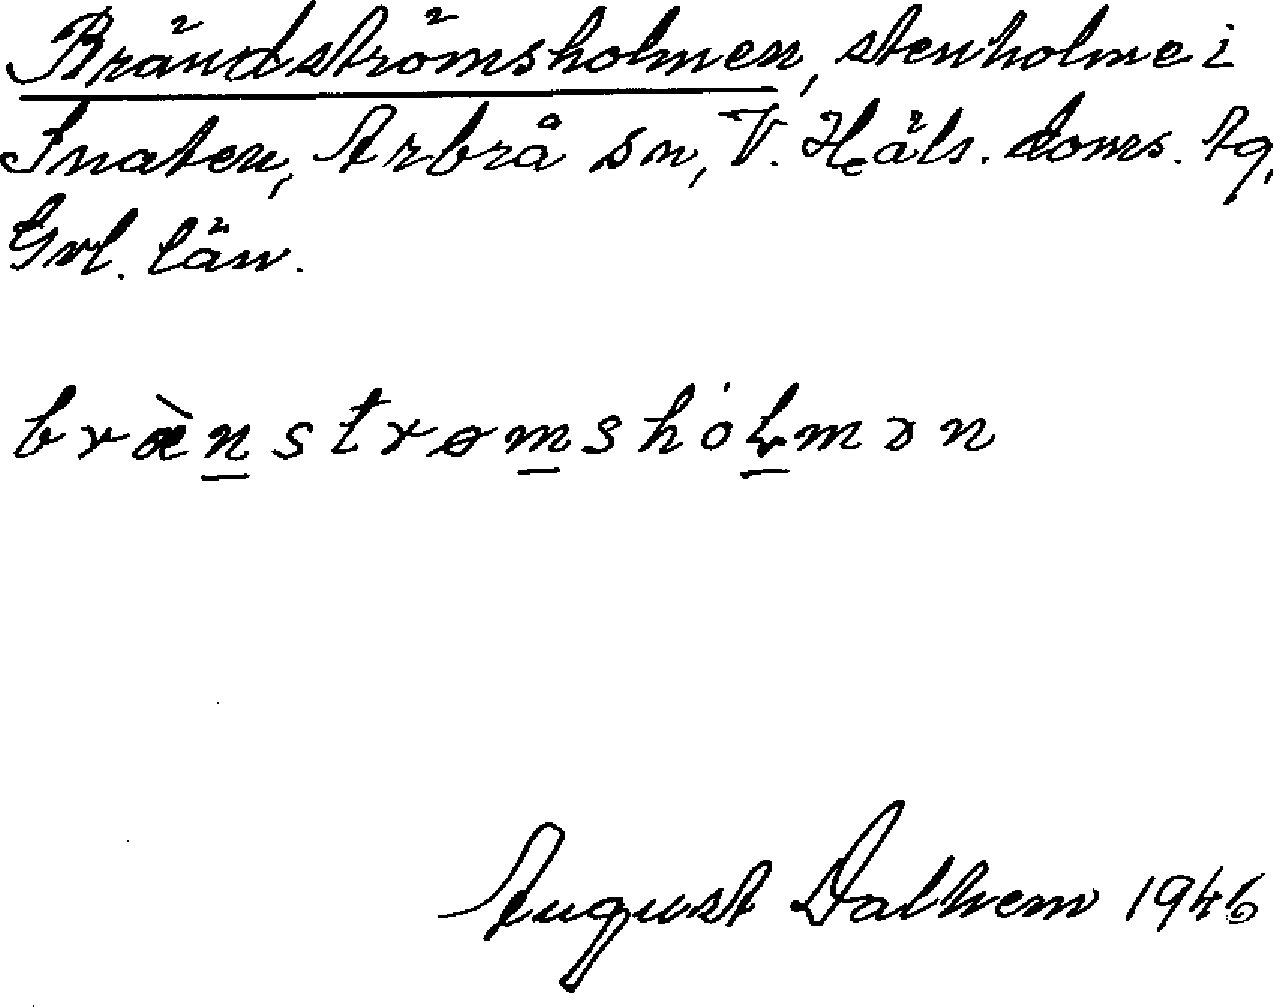 Brändströmsholmen, stenholme i
Snaten, Arbrå sn, V. Häls. doms. tg,
Gvl. län.
bræ̀nstrømshòlmən
August Dalhem 1946